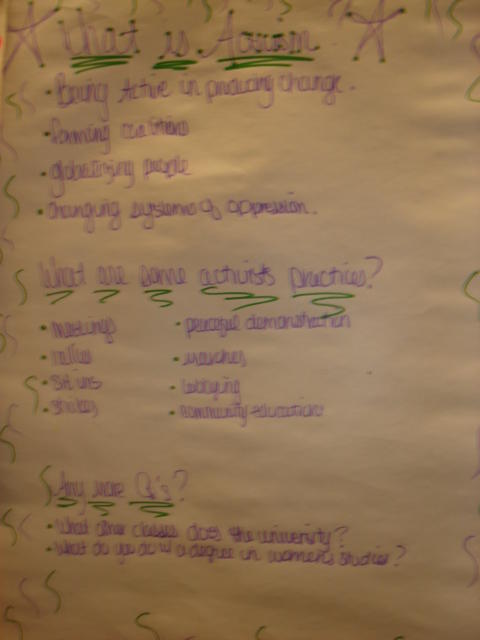 What is Activism
• Being Active in producing change.
• forming coalitions
• globalizing people
• changing systems of oppression.
What are some activists practices?
• meetings • peaceful demonstration
• rallies • marches
• sit ins • lobbying
• strikes • community education
Any more Q's?
• What other classes does the university?
• What do you do w/ a degree in women's studies?